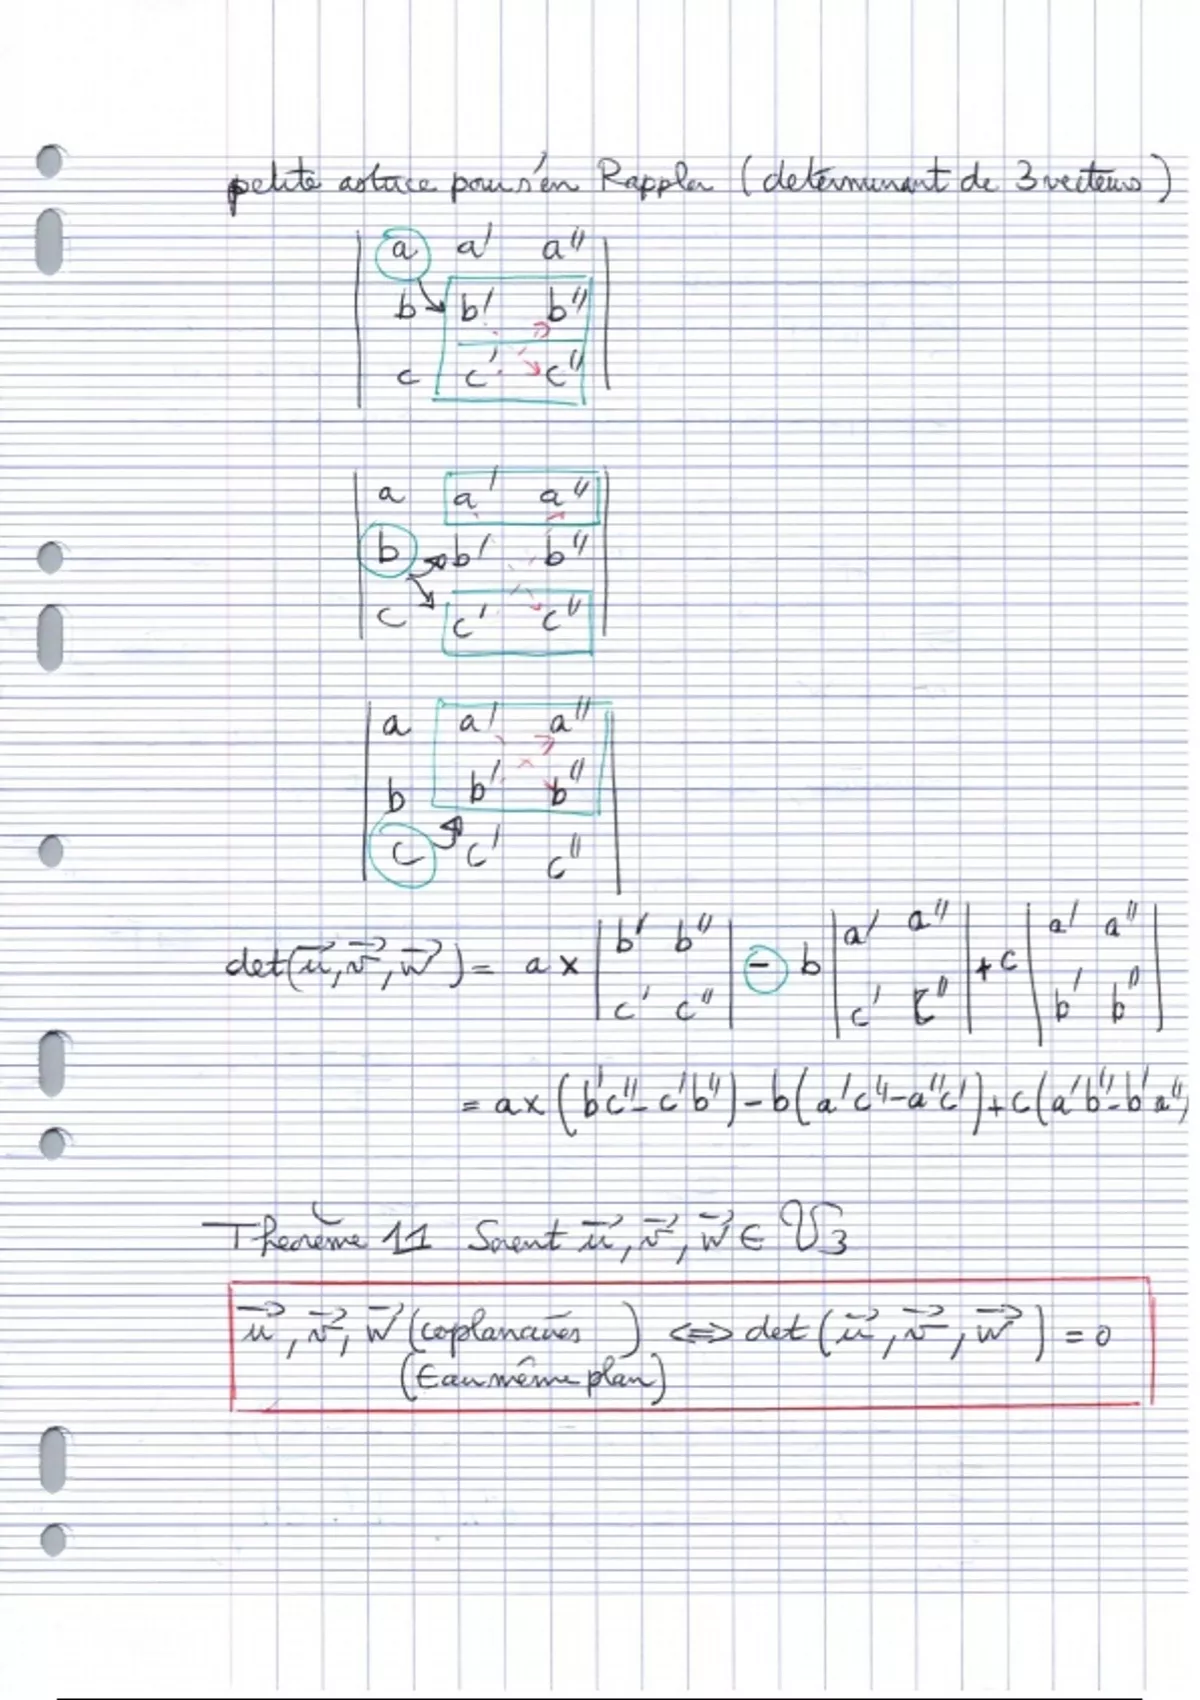 petite astuce pour s'én Rappler (determinant de 3 vecteurs)
a a' a"
b b' b"
c c' c"
a a' a"
b b' b"
c c' c"
a a' a"
b b' b"
c c' c"
det(u⃗, v⃗, w⃗) = a × | b' b" ; c' c" | - b | a' a" ; c' c" | + c | a' a" ; b' b" |
= a × (b'c" - c'b") - b(a'c" - a"c') + c(a'b" - b'a")
Theorème 11 Soient u⃗, v⃗, w⃗ ∈ V₃
u⃗, v⃗, w⃗ (coplanaires) ⟺ det(u⃗, v⃗, w⃗) = 0
(∈ au même plan)